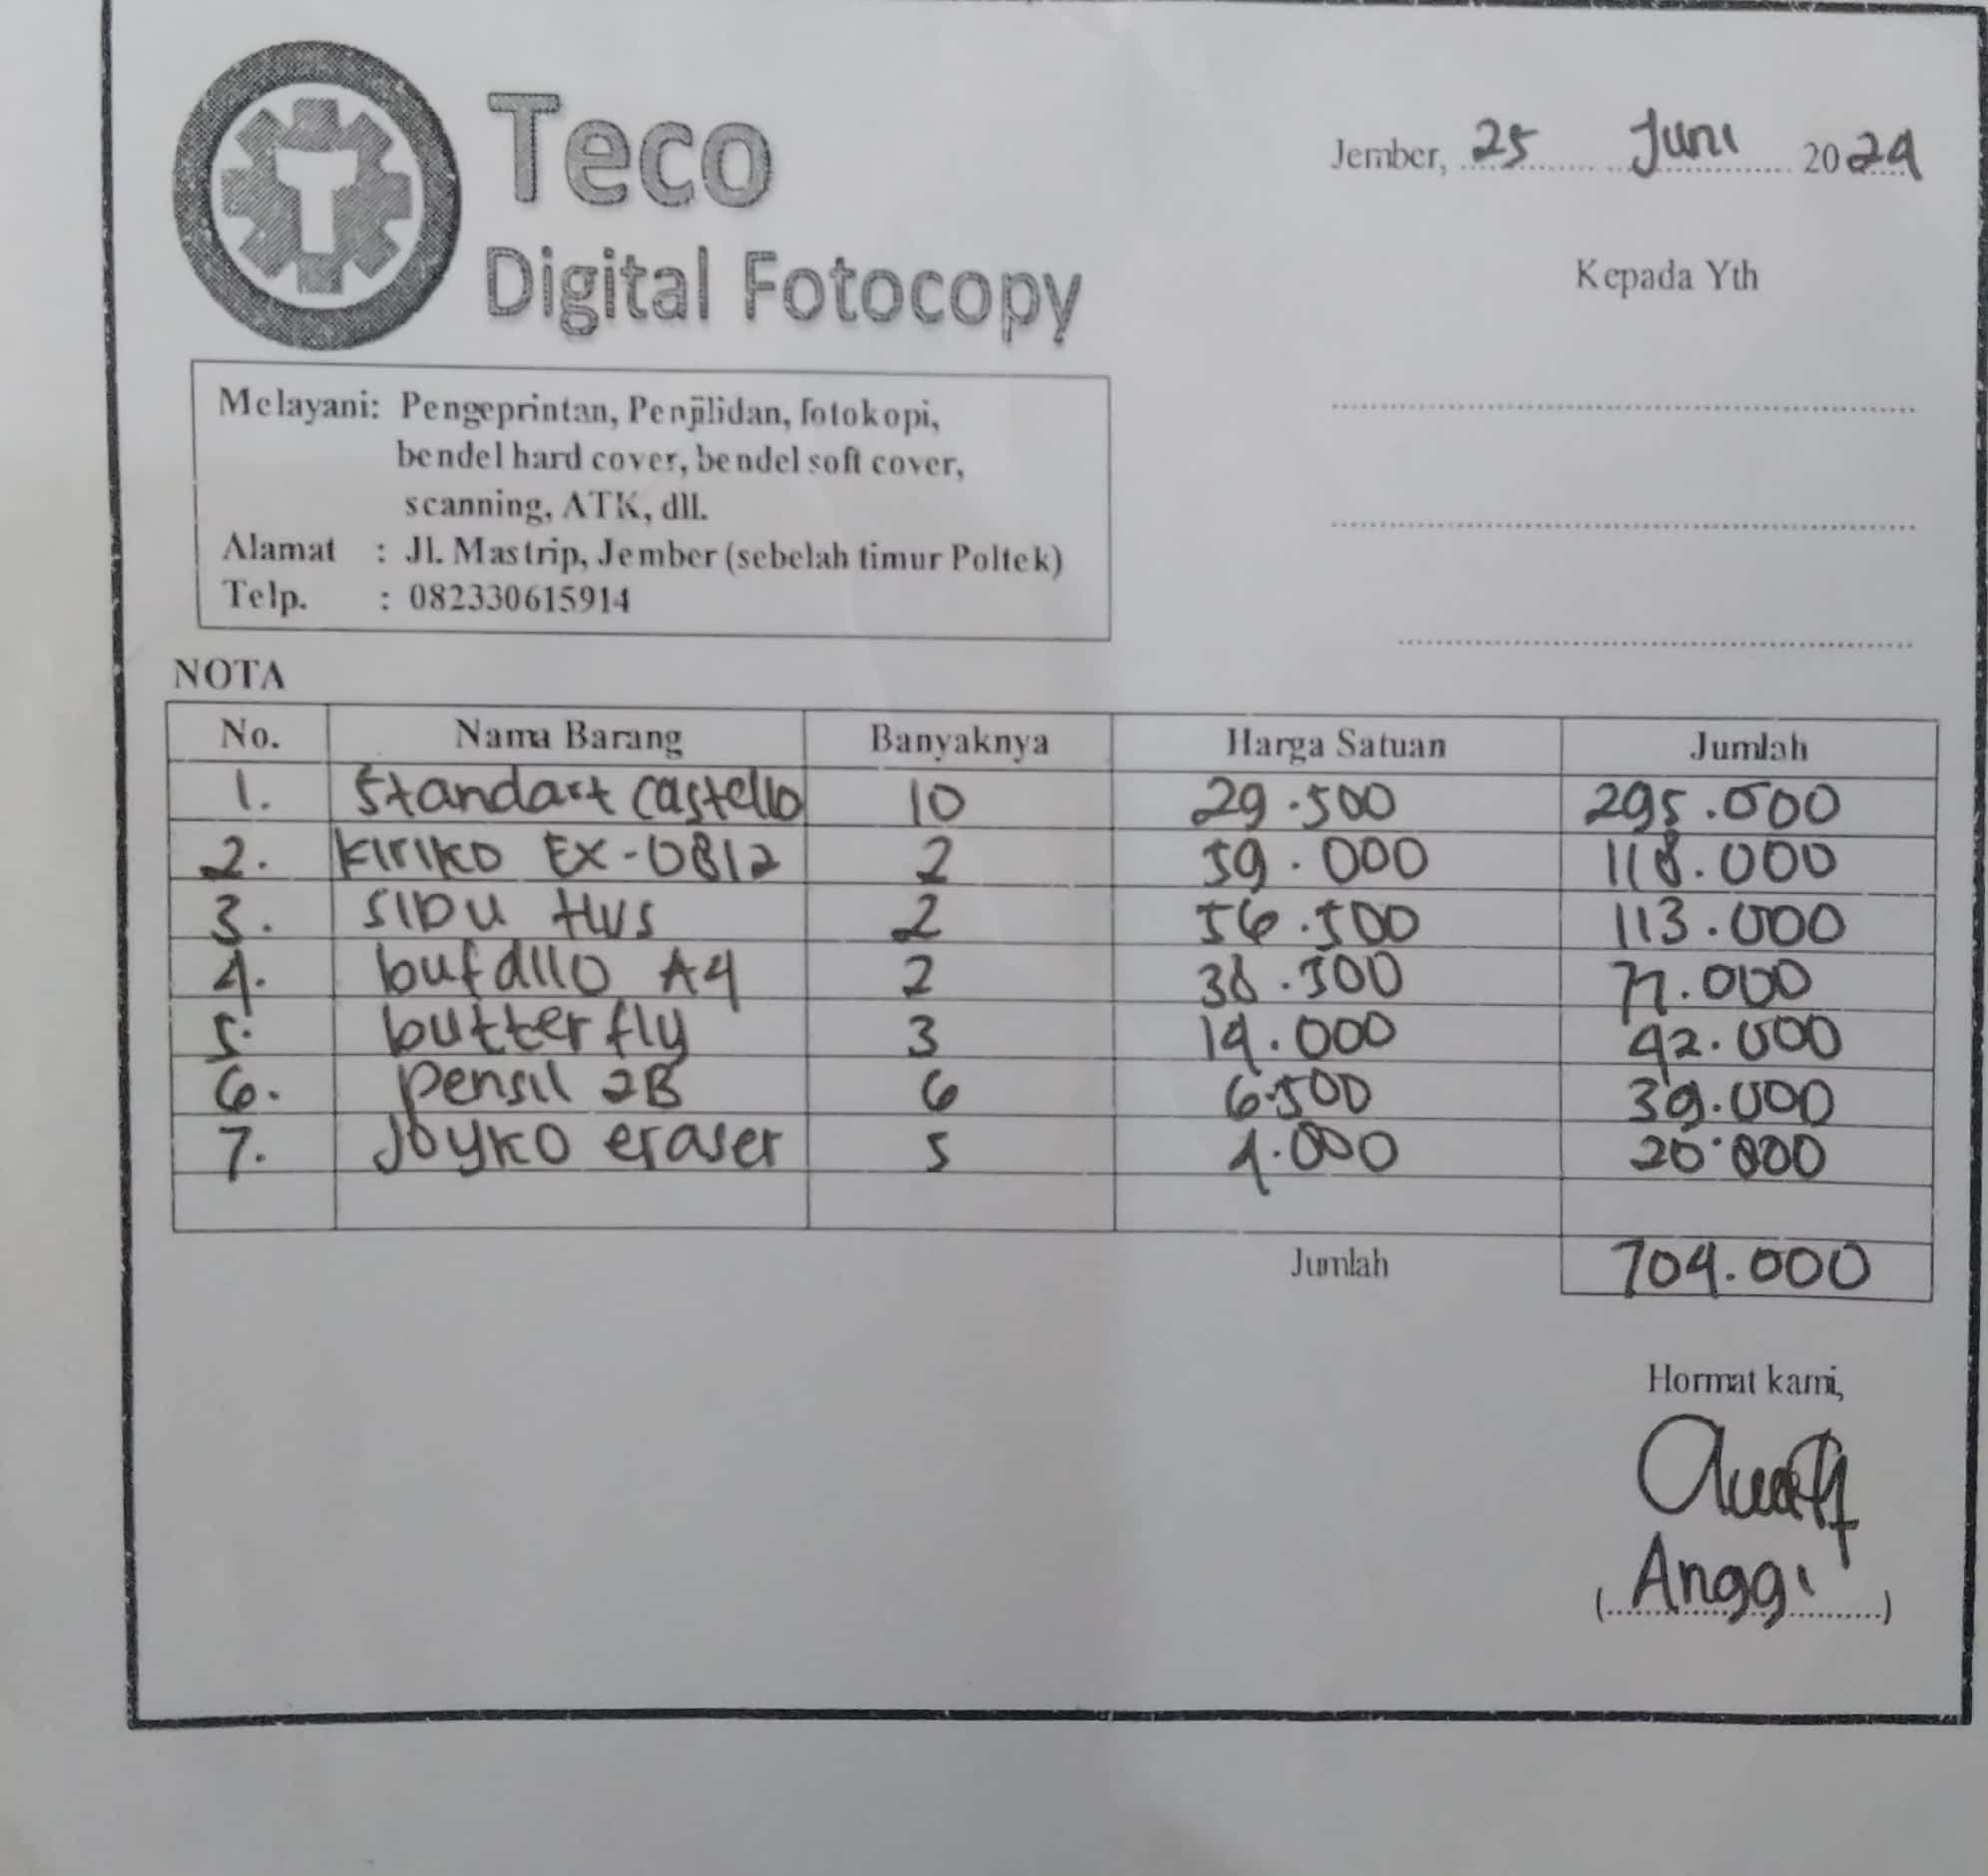 Teco
Digital Fotocopy
Jember, 25 Juni 2024
Kepada Yth
Melayani: Pengeprintan, Penjilidan, fotokopi,
bendel hard cover, bendel soft cover,
scanning, ATK, dll.
Alamat : Jl. Mastrip, Jember (sebelah timur Poltek)
Telp. : 082330615914
NOTA
No. Nama Barang Banyaknya Harga Satuan Jumlah
1. Standart Castello 10 29.500 295.000
2. Kiriko EX-0812 2 59.000 118.000
3. SIDU HVS 2 56.500 113.000
4. bufallo A4 2 38.500 77.000
5. butterfly 3 14.000 42.000
6. Pensil 2B 6 6.500 39.000
7. Joyko eraser 5 4.000 20.000
Jumlah 704.000
Hormat kami,
(Anggi)